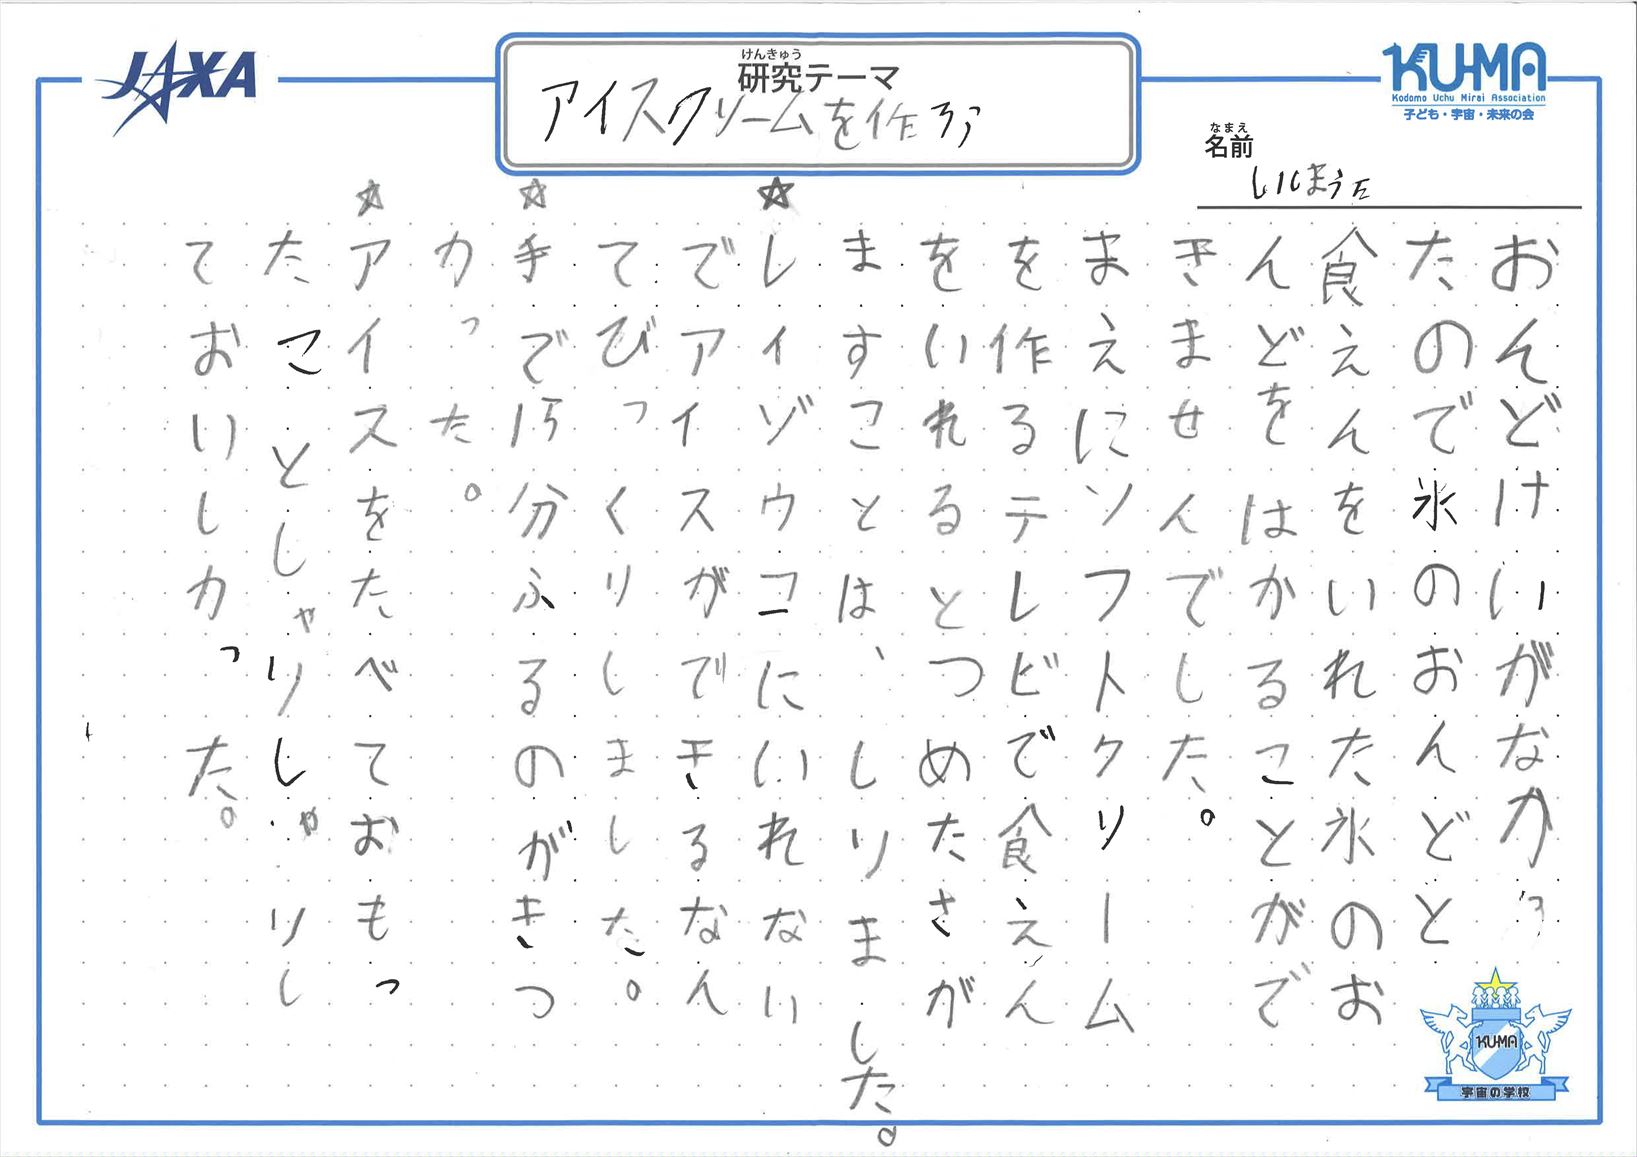 JAXA
けんきゅう
研究テーマ
アイスクリームを作ろう
KU-MA
Kodomo Uchu Mirai Association
子ども・宇宙・未来の会
なまえ
名前
おんどけいがなかっ
たので氷のおんどと
食えんをいれた氷のお
んどをはかることがで
きませんでした。
まえにソフトクリーム
を作るテレビで食えん
をいれるとつめたさが
ますことは、しりました。
☆レイゾウコにいれない
でアイスができるなん
てびっくりしました。
☆手で15分ふるのがきつ
かった。
☆アイスをたべておもっ
たことしゃりしゃりし
ておいしかった。
KU-MA
宇宙の学校